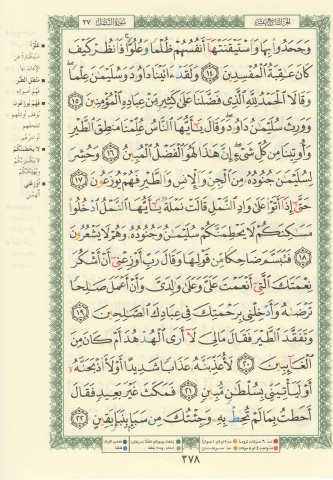 الجزء التاسع عشر سورة النمل ٢٧
وَجَحَدُوا۟ بِهَا وَٱسْتَيْقَنَتْهَآ أَنفُسُهُمْ ظُلْمًا وَعُلُوًّا ۚ فَٱنظُرْ كَيْفَ
كَانَ عَٰقِبَةُ ٱلْمُفْسِدِينَ ١٤ وَلَقَدْ ءَاتَيْنَا دَاوُۥدَ وَسُلَيْمَٰنَ عِلْمًا ۖ
وَقَالَا ٱلْحَمْدُ لِلَّهِ ٱلَّذِى فَضَّلَنَا عَلَىٰ كَثِيرٍ مِّنْ عِبَادِهِ ٱلْمُؤْمِنِينَ ١٥
وَوَرِثَ سُلَيْمَٰنُ دَاوُۥدَ ۖ وَقَالَ يَٰٓأَيُّهَا ٱلنَّاسُ عُلِّمْنَا مَنطِقَ ٱلطَّيْرِ
وَأُوتِينَا مِن كُلِّ شَىْءٍ ۖ إِنَّ هَٰذَا لَهُوَ ٱلْفَضْلُ ٱلْمُبِينُ ١٦ وَحُشِرَ
لِسُلَيْمَٰنَ جُنُودُهُۥ مِنَ ٱلْجِنِّ وَٱلْإِنسِ وَٱلطَّيْرِ فَهُمْ يُوزَعُونَ ١٧
حَتَّىٰٓ إِذَآ أَتَوْا۟ عَلَىٰ وَادِ ٱلنَّمْلِ قَالَتْ نَمْلَةٌ يَٰٓأَيُّهَا ٱلنَّمْلُ ٱدْخُلُوا۟
مَسَٰكِنَكُمْ لَا يَحْطِمَنَّكُمْ سُلَيْمَٰنُ وَجُنُودُهُۥ وَهُمْ لَا يَشْعُرُونَ
١٨ فَتَبَسَّمَ ضَاحِكًا مِّن قَوْلِهَا وَقَالَ رَبِّ أَوْزِعْنِىٓ أَنْ أَشْكُرَ
نِعْمَتَكَ ٱلَّتِىٓ أَنْعَمْتَ عَلَىَّ وَعَلَىٰ وَٰلِدَىَّ وَأَنْ أَعْمَلَ صَٰلِحًا
تَرْضَىٰهُ وَأَدْخِلْنِى بِرَحْمَتِكَ فِى عِبَادِكَ ٱلصَّٰلِحِينَ ١٩
وَتَفَقَّدَ ٱلطَّيْرَ فَقَالَ مَالِىَ لَآ أَرَى ٱلْهُدْهُدَ أَمْ كَانَ مِنَ
ٱلْغَآئِبِينَ ٢٠ لَأُعَذِّبَنَّهُۥ عَذَابًا شَدِيدًا أَوْ لَأَا۟ذْبَحَنَّهُۥٓ
أَوْ لَيَأْتِيَنِّى بِسُلْطَٰنٍ مُّبِينٍ ٢١ فَمَكَثَ غَيْرَ بَعِيدٍ فَقَالَ
أَحَطتُ بِمَا لَمْ تُحِطْ بِهِۦ وَجِئْتُكَ مِن سَبَإٍۭ بِنَبَإٍ يَقِينٍ ٢٢
عُلُوًّا
استكبارًا عن
الإيمان بها
منطق الطير
فهم أصواته
فهم يوزعون
لا يحطمنكم
لا يكسرنكم
ويهلكنكم
أوزعني
ألهمني
٣٧٨